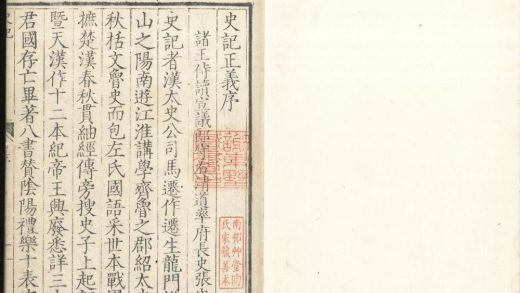 史記正義序
諸王侍讀宣議郎守右清道率府長史張
史記者漢太史公司馬遷作遷生龍門
山之陽南遊江淮講學齊魯之郡紹太
秋括文魯史而包左氏國語采世本戰國
摭楚漢春秋貫紬經傳旁搜史子上起
暨天漢作十二本紀帝王興廢悉詳三十
君國存亡畢著八書贊陰陽禮樂十表
氏家藏善本